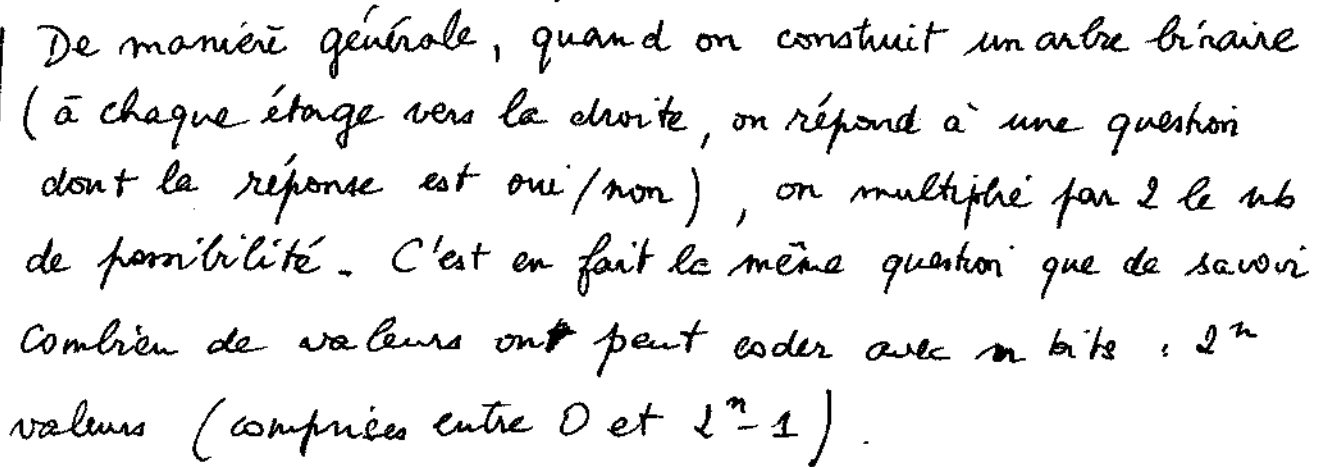 De manière générale, quand on construit un arbre binaire
(à chaque étage vers la droite, on répond à une question
dont la réponse est oui/non), on multiplie par 2 le nb
de possibilité. C'est en fait la même question que de savoir
combien de valeurs on peut coder avec n bits : 2^n
valeurs (comprises entre 0 et 2^n - 1).